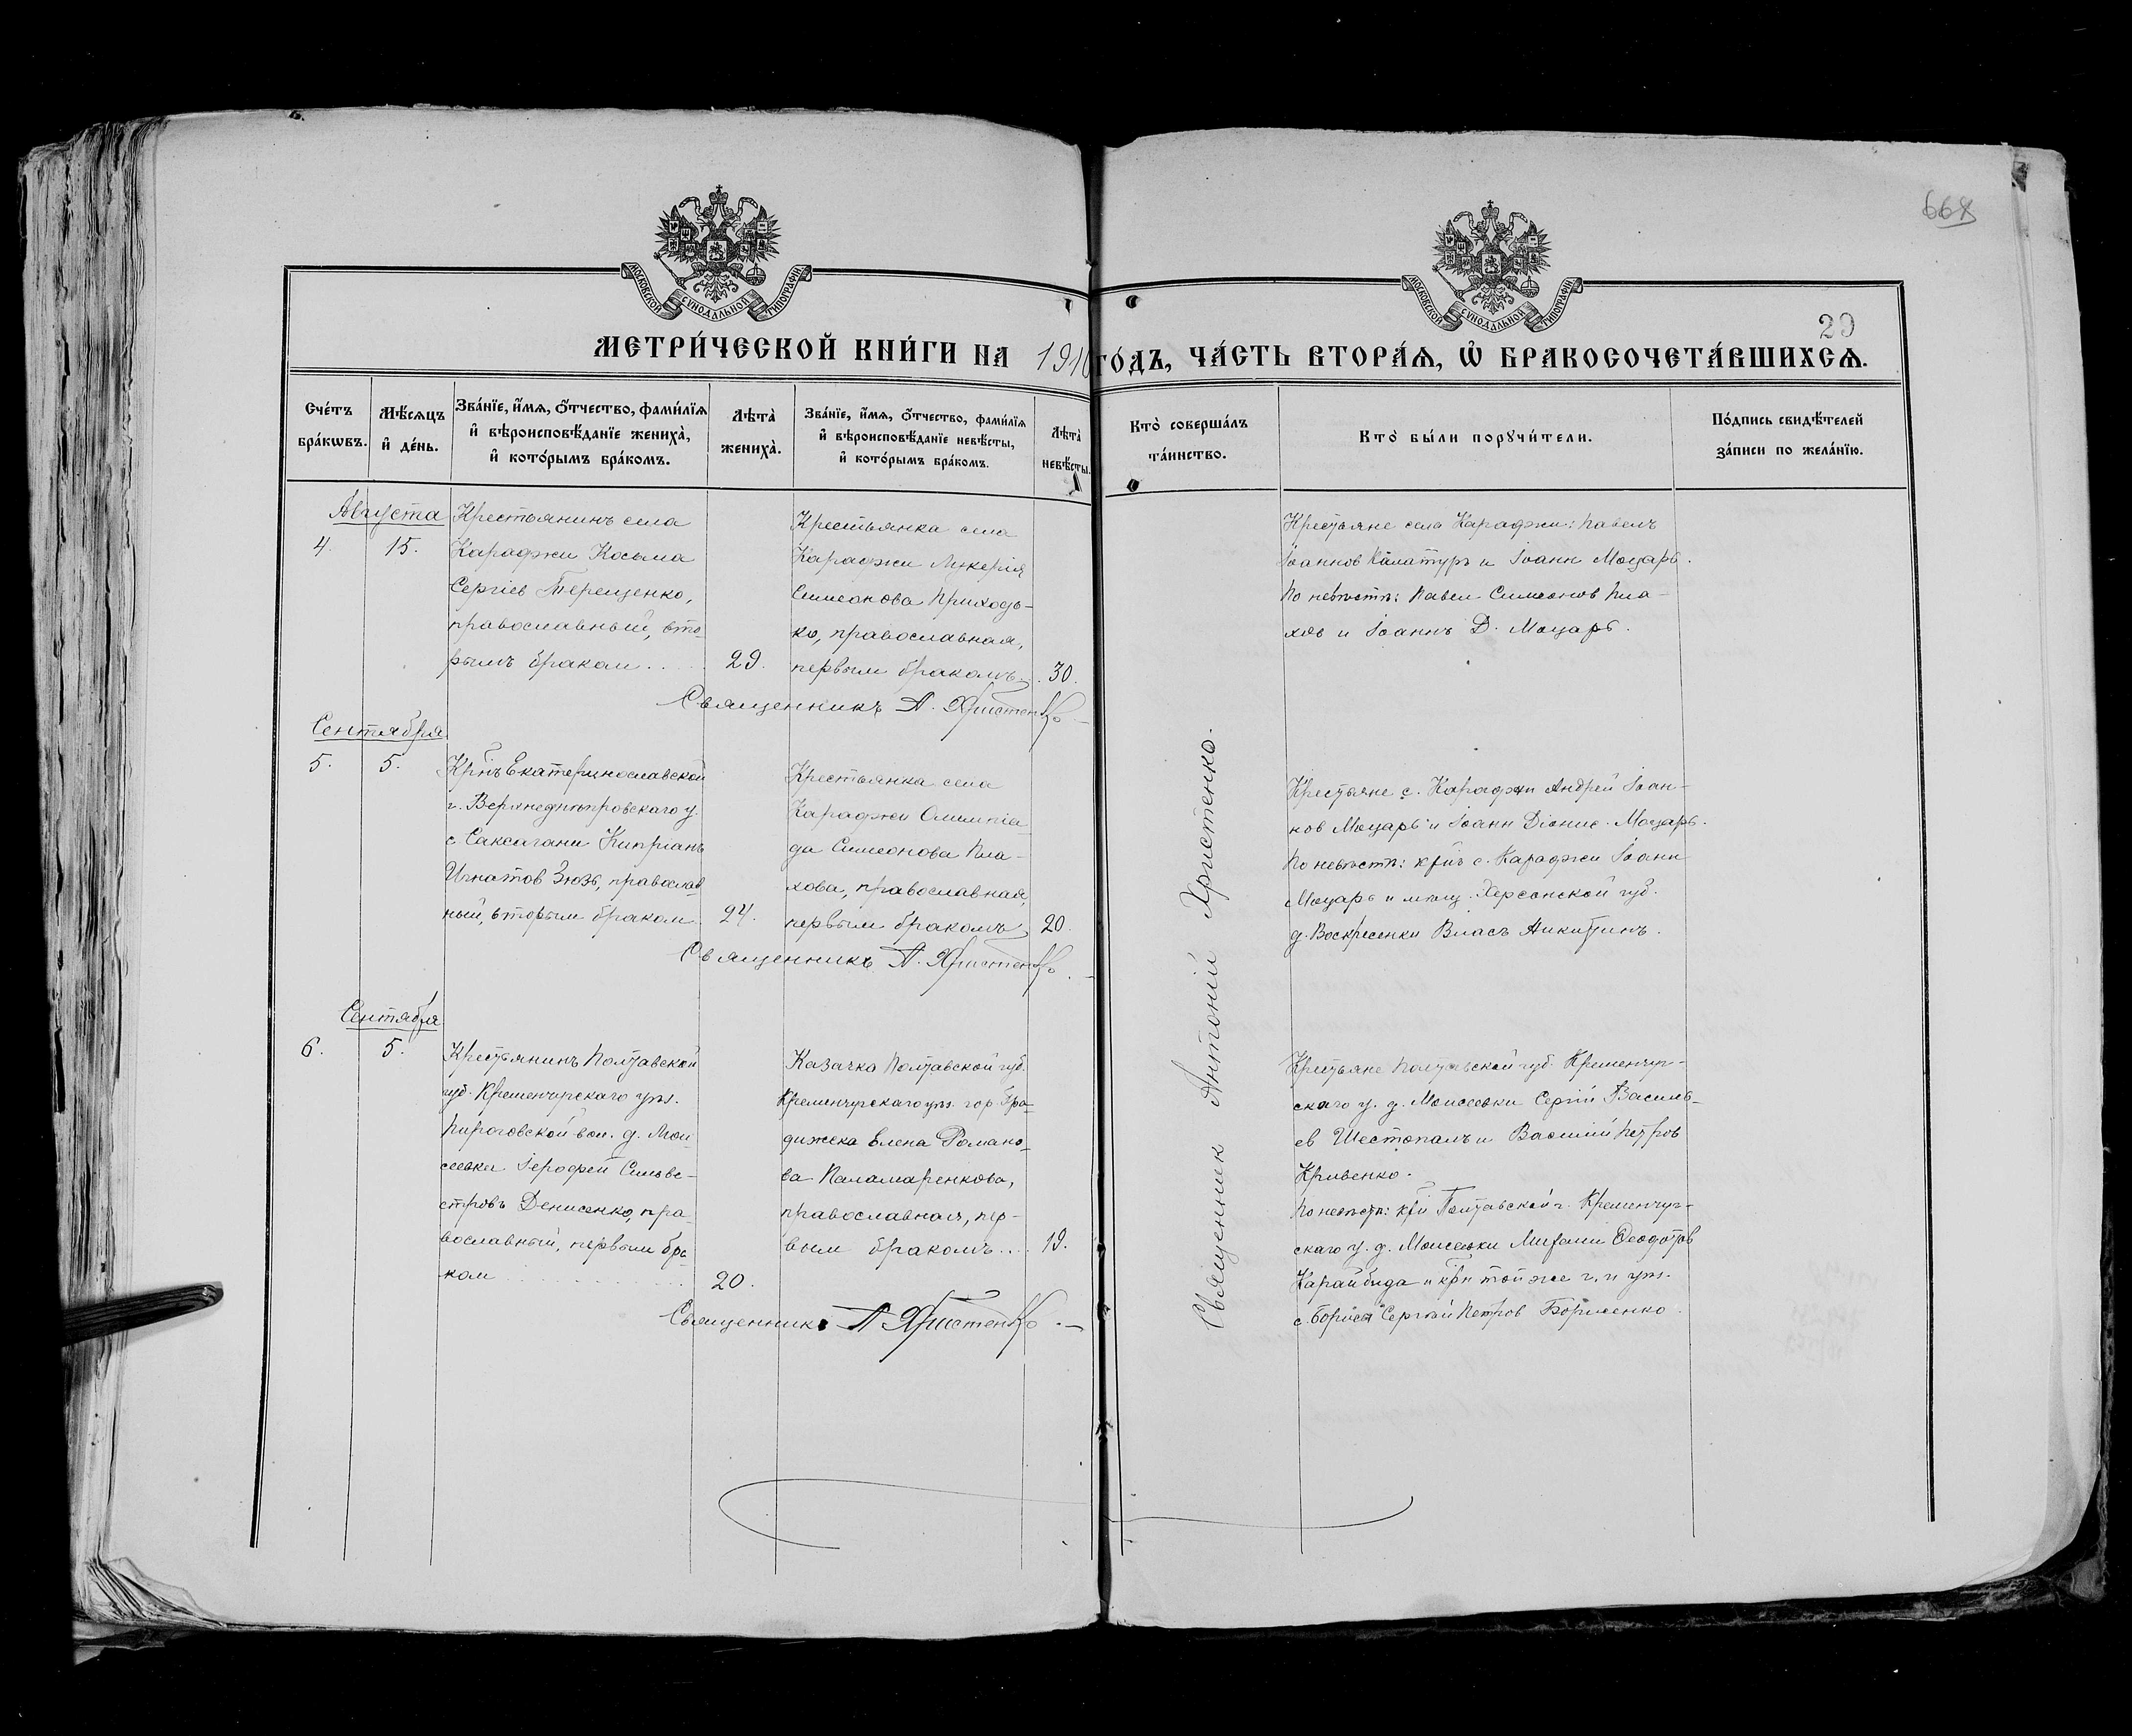 668
29
МОСКОВСКОЙ СѴНОДАЛЬНОЙ ТИПОГРАФІИ
МОСКОВСКОЙ СѴНОДАЛЬНОЙ ТИПОГРАФІИ
МЕТРИ́ЧЕСКОЙ КНИ́ГИ НА 1910 ГО́ДЪ, ЧА́СТЬ ВТОРА́Я, Ѡ҆ БРАКОСОЧЕТА́ВШИХСѦ.
Сче́тъ бра́кѡвъ.
Мѣ́сѧцъ и҆ де́нь.
Зва́нїе, и҆́мѧ, ѻ҆́тчество, фами́лїѧ и҆ вѣроисповѣ́данїе жениха̀, и҆ кото́рымъ бра́комъ.
Лѣта̀ жениха̀.
Зва́нїе, и҆́мѧ, ѻ҆́тчество, фами́лїѧ и҆ вѣроисповѣ́данїе невѣ́сты, и҆ кото́рымъ бра́комъ.
Лѣта̀ невѣ́сты.
Кто̀ соверша́лъ та́инство.
Кто̀ бы́ли порꙋчи́тели.
По́дпись свидѣ́телей за́писи по жела́нїю.
Августа
4.
15.
Крестьянинъ села
Караджи Косьма
Сергіев Терещенко,
православный, вто-
рымъ браком
29.
Крестьянка села
Караджи Лукерія
Симеонова Приходь-
ко, православная,
первым бракомъ
30.
Крестьяне села Караджи: Павелъ
Іоаннов Калатуръ и Іоанн Моцарь.
По невѣстѣ: Павел Симеонов Пла-
хов и Іоаннъ Д. Моцарь.
Священникъ А. Христенко
Сентября
5.
5.
Кр̃нъ Екатеринославской
г. Верхнеднѣпровскаго у.
с Саксагани Кипріанъ
Игнатов Зюзь, православ
ный, вторым браком
24.
Крестьянка села
Караджи Олимпіа
да Симеонова Пла-
хова, православная,
первым бракомъ
20.
Крестьяне с. Караджи Андрей Іоан-
нов Моцарь и Іоанн Діонис. Моцарь.
По невѣстѣ: с. Караджи Іоанн
Моцарь и мѣщ. Херсонской губ.
д. Воскресенки Власъ Аникитинъ.
Священникъ А. Христенко
Сентября
6.
5.
Крестьянинъ Полтавской
губ. Кременчугскаго уѣз.
Пироговской вол. д. Мои-
сеевки Іерофей Сильве-
стровъ Денисенко, пра-
вославный, первым бра
ком
20.
Казачка Полтавской губ.
Кременчугскаго уѣз. гор. Гра-
дижска Елена Романо-
ва Паламаренкова,
православная, пер-
вым бракомъ
19.
Крестьяне Полтавской губ. Кременчуг-
скаго у. д. Моисеевки Сергій Василь-
ев Шестопалъ и Василій Петров
Кривенко.
По невѣстѣ: Полтавской г. Кременчуг-
скаго у. д. Моисеевки Ѳеодотов
Карайбида и той же г. и уѣз.
с. Сергѣй Петров Борисенко.
Священникъ А. Христенко
Священник Антоній Христенко.